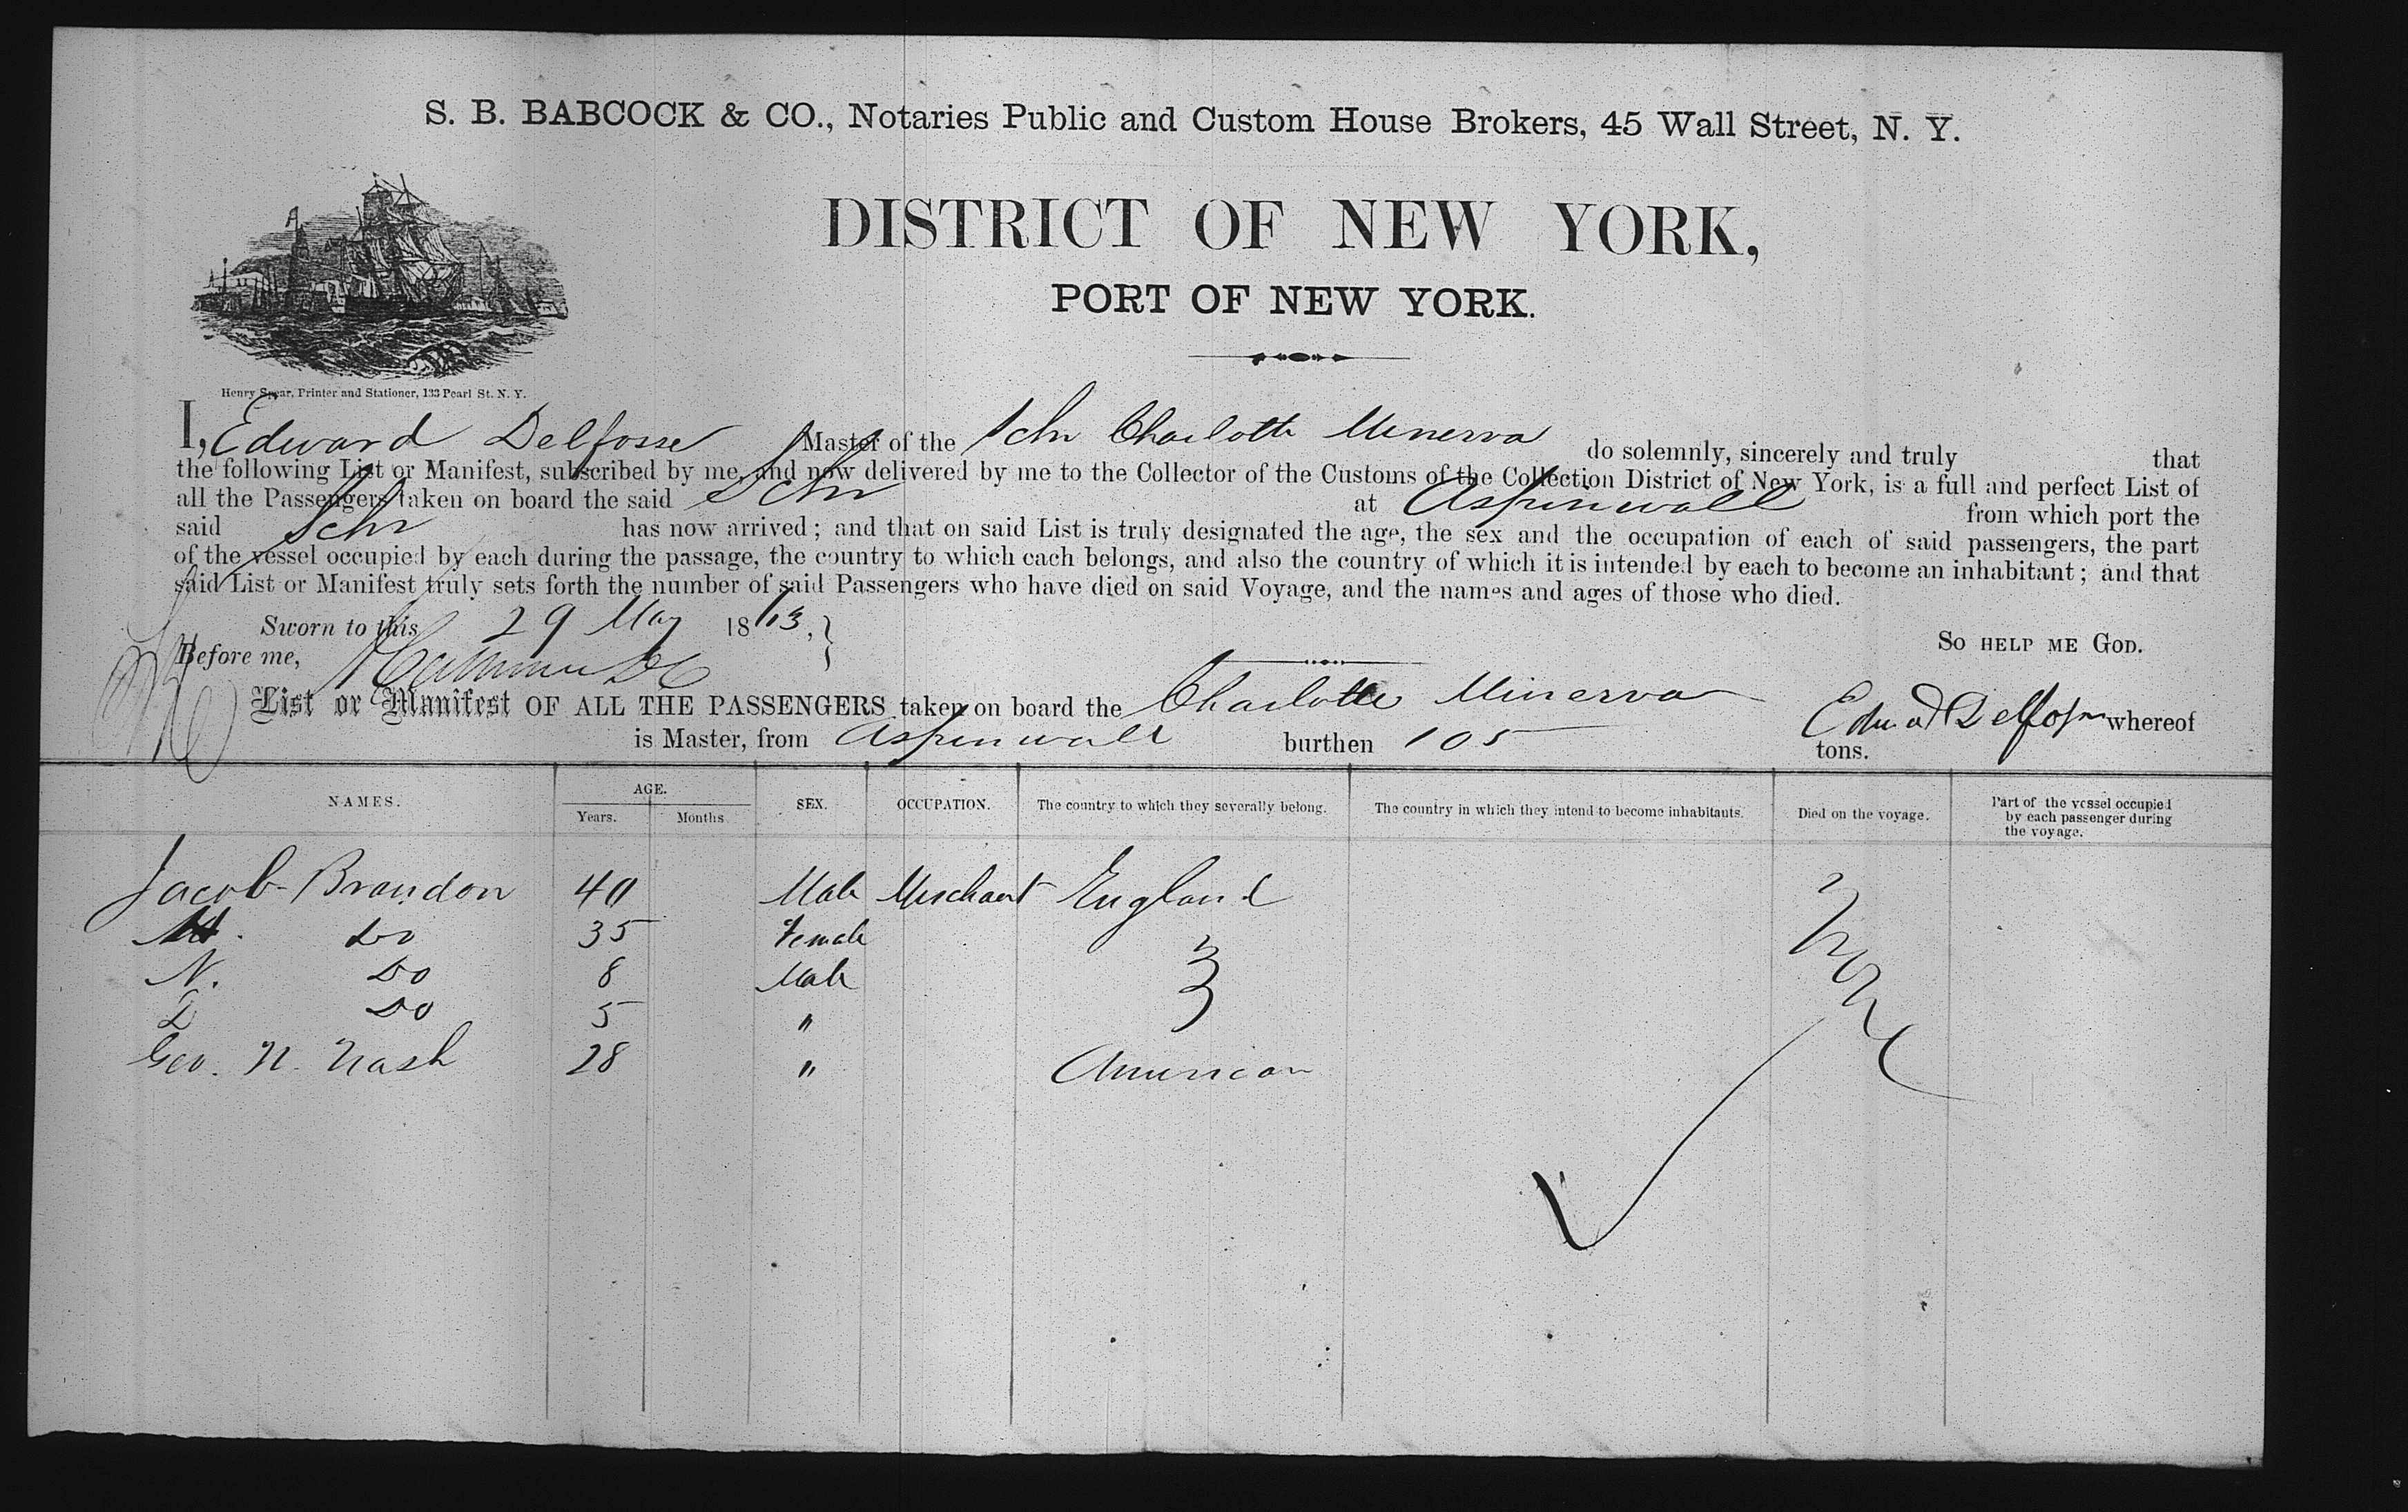 S. B. BABCOCK & CO., Notaries Public and Custom House Brokers, 45 Wall Street, N. Y.
DISTRICT OF NEW YORK,
PORT OF NEW YORK.
Henry Spear, Printer and Stationer, 133 Pearl St. N. Y.
I, Edward Delfosse Master of the Schr Charlotte Minerva do solemnly, sincerely and truly that
the following List or Manifest, subscribed by me, and now delivered by me to the Collector of the Customs of the Collection District of New York, is a full and perfect List of
all the Passengers taken on board the said Schr at Aspinwall from which port the
said Schr has now arrived; and that on said List is truly designated the age, the sex and the occupation of each of said passengers, the part
of the vessel occupied by each during the passage, the country to which each belongs, and also the country of which it is intended by each to become an inhabitant; and that
said List or Manifest truly sets forth the number of said Passengers who have died on said Voyage, and the names and ages of those who died.
Sworn to this 29 May 1863, SO HELP ME GOD.
Before me,
List or Manifest OF ALL THE PASSENGERS taken on board the Charlotte Minerva Edwad Delfosse whereof
is Master, from Aspinwall burthen 105 tons.
NAMES. AGE. Years. Months SEX. OCCUPATION. The country to which they severally belong. The country in which they intend to become inhabitants. Died on the voyage. Part of the vessel occupied by each passenger during the voyage.
Jacob Brandon 40 Male Merchant England None
Do 35 Female
N. Do 8 Male
Do 5 "
Geo. N. Nash 28 " American